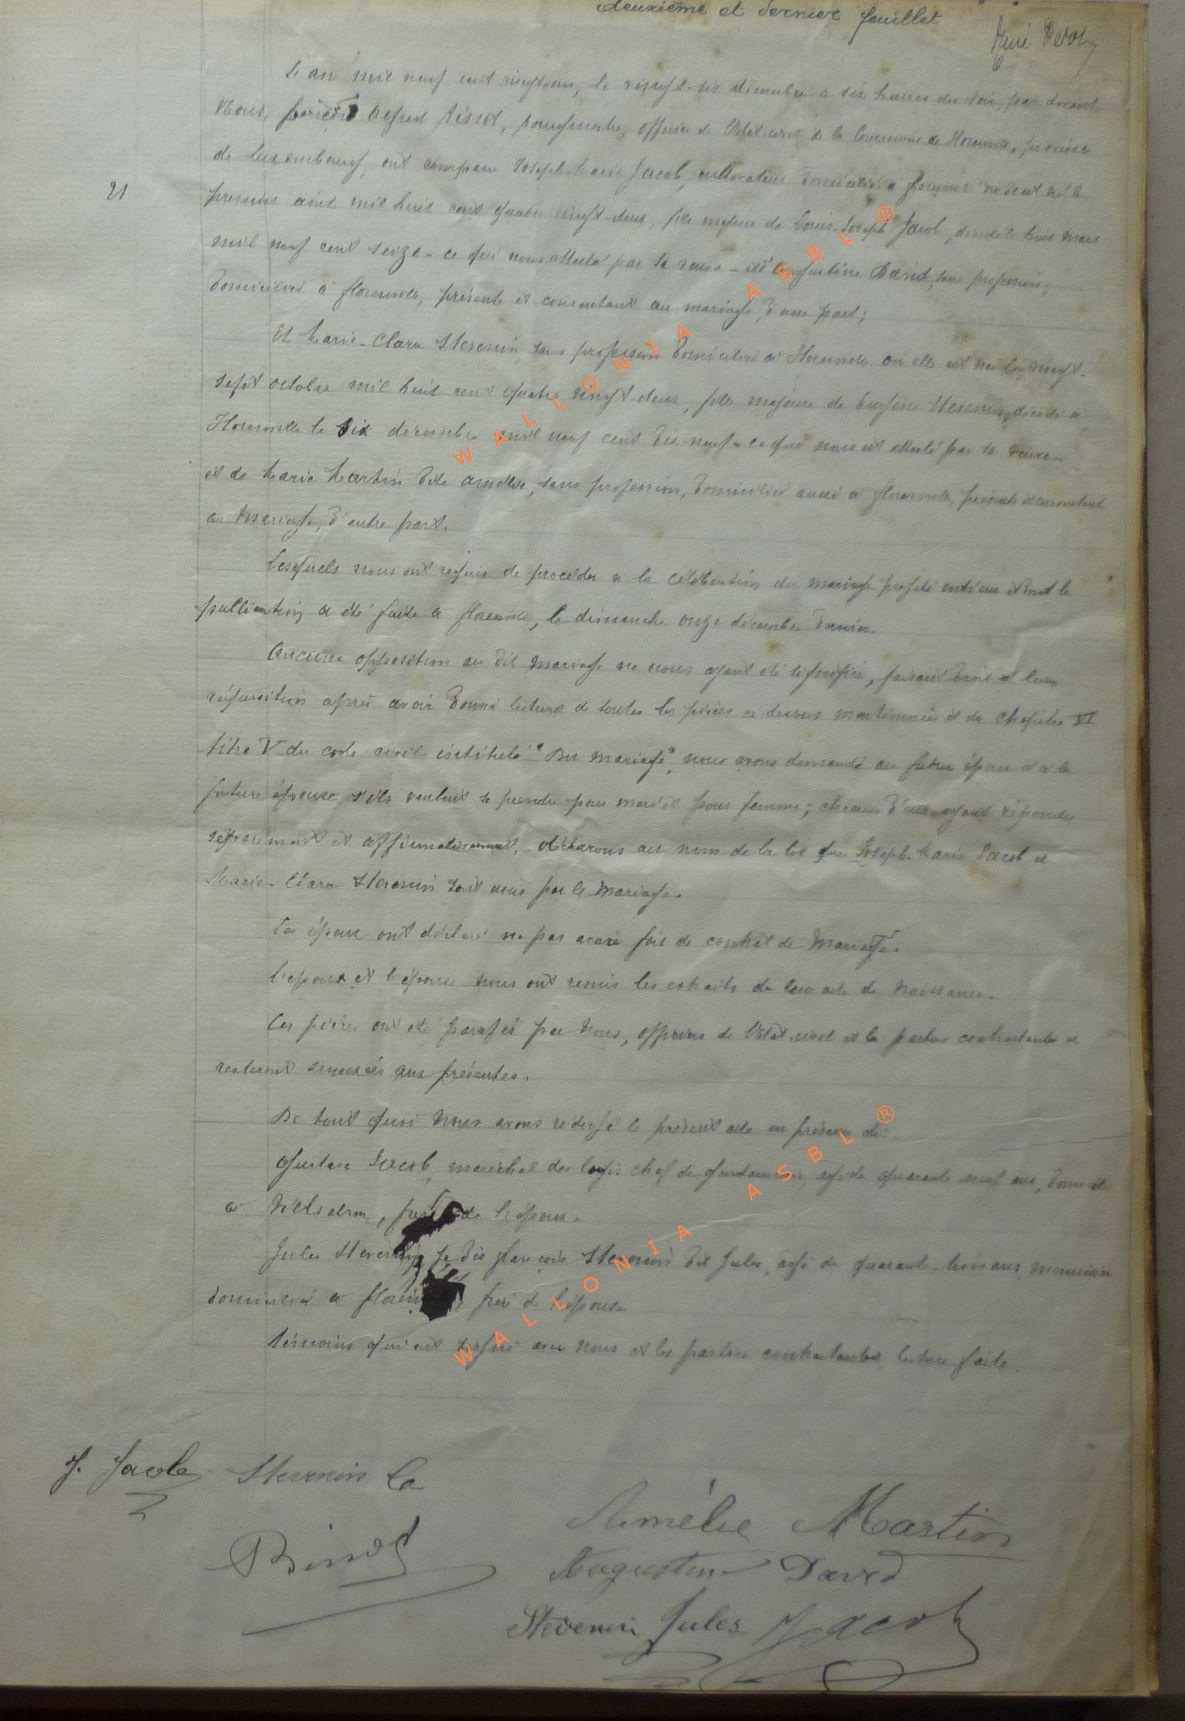 deuxième et dernier feuillet
L'an mil neuf cent vingt-un, le vingt-six décembre à six heures du soir, par devant
Nous, Alfred Bissot, bourgmestre, officier de l'Etat-civil de la Commune de Florenville, province
21
de Luxembourg, ont comparu Joseph-Marie Jacob, cultivateur domicilié à Florenville où il est né le
premier août mil huit cent quatre vingt-deux, fils majeur de Louis-Joseph Jacob, décédé le huit mars
mil neuf cent seize - ce qui nous atteste par sa veuve - et d'Augustine David, sans profession,
domiciliée à Florenville, présente et consentant au mariage, d'une part;
Et Marie-Clara Stevenin sans profession domiciliée à Florenville où elle est née le vingt-
sept octobre mil huit cent quatre vingt-deux, fille majeure de Eugène Stevenin, décédé à
Florenville le six décembre mil neuf cent dix-neuf - ce qui nous est attesté par sa veuve -
et de Marie Martin dite Amélie, sans profession, domiciliée aussi à Florenville, présente et consentant
au mariage, d'autre part.
Lesquels nous ont requis de procéder à la célébration du mariage projeté entr'eux et dont la
publication a été faite à Florenville, le dimanche onze décembre dernier.
Aucune opposition au dit mariage ne nous ayant été signifiée, faisant droit à leur
réquisition après avoir donné lecture de toutes les pièces ci dessus mentionnées et du chapitre VI
titre V du code civil intitulé "Du mariage", nous avons demandé au futur époux et à la
future épouse, s'ils veulent se prendre pour mari et pour femme; chacun d'eux ayant répondu
séparément et affirmativement, déclarons au nom de la loi que Joseph-Marie Jacob et
Marie-Clara Stevenin sont unis par le mariage.
Les époux ont déclaré ne pas avoir fait de contrat de mariage.
L'époux et l'épouse nous ont remis les extraits de leur acte de naissance.
Ces pièces ont été parafés par Nous, officier de l'Etat-civil et les parties contractantes et
resteront annexées aux présentes.
De tout quoi Nous avons rédigé le présent acte en présence de:
Gustave Jacob, maréchal des logis chef de gendarmerie, âgé de quarante neuf ans, domicilié
à Vielsalm, frère de l'époux.
Jules Stevenin, Je dis François Stevenin dit Jules, âgé de quarante-trois ans, menuisier
domicilié à Florenville frère de l'épouse
témoins qui ont signé avec nous et les parties contractantes, lecture faite.
J. Jacob Stevenin Ca
Amélie Martin
Bissot
Augustine David
Stevenin Jules Jacob
WALLONIA ASBL ®
WALLONIA ASBL ®